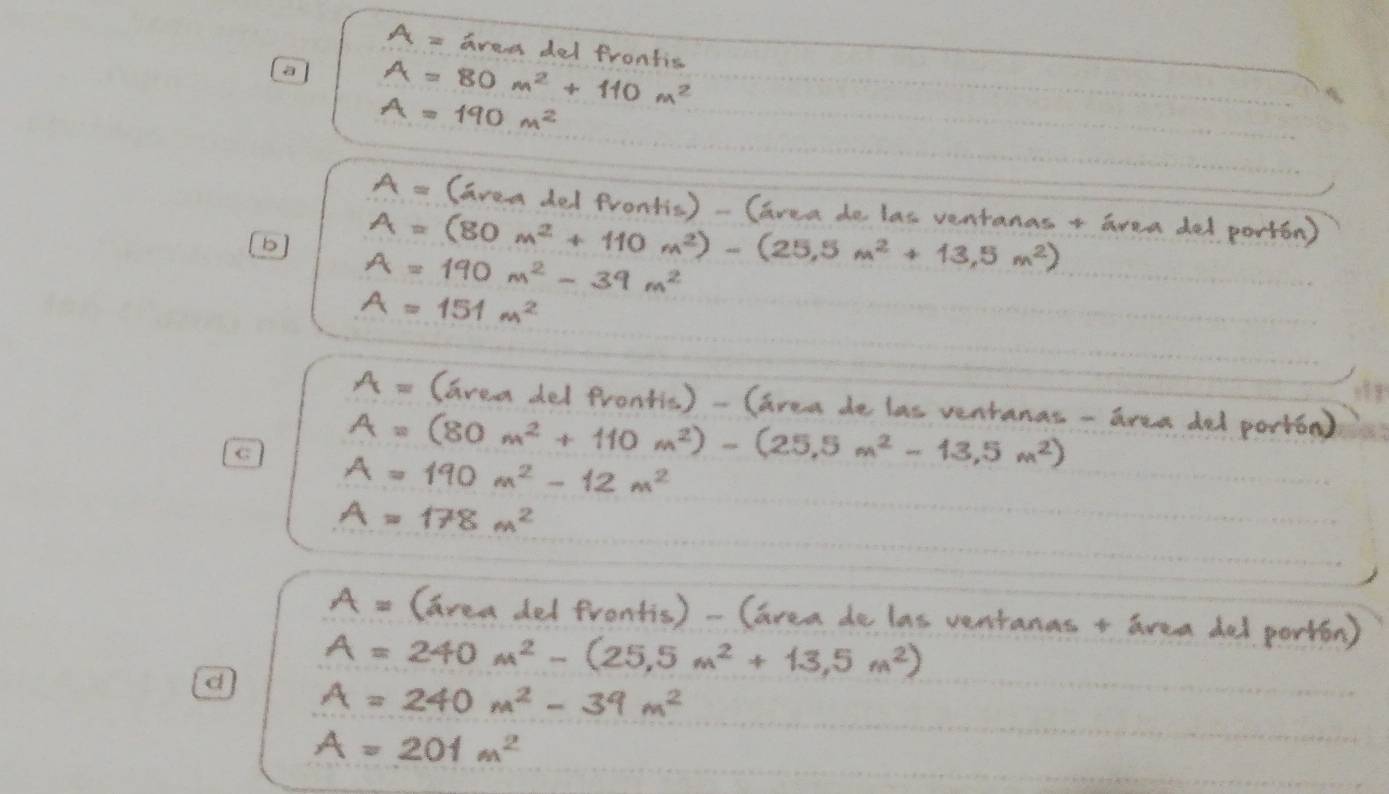 a
A = área del frontis
A = 80 m² + 110 m²
A = 190 m²
b
A = (área del frontis) - (área de las ventanas + área del portón)
A = (80 m² + 110 m²) - (25,5 m² + 13,5 m²)
A = 190 m² - 39 m²
A = 151 m²
c
A = (área del frontis) - (área de las ventanas - área del portón)
A = (80 m² + 110 m²) - (25,5 m² - 13,5 m²)
A = 190 m² - 12 m²
A = 178 m²
d
A = (área del frontis) - (área de las ventanas + área del portón)
A = 240 m² - (25,5 m² + 13,5 m²)
A = 240 m² - 39 m²
A = 201 m²